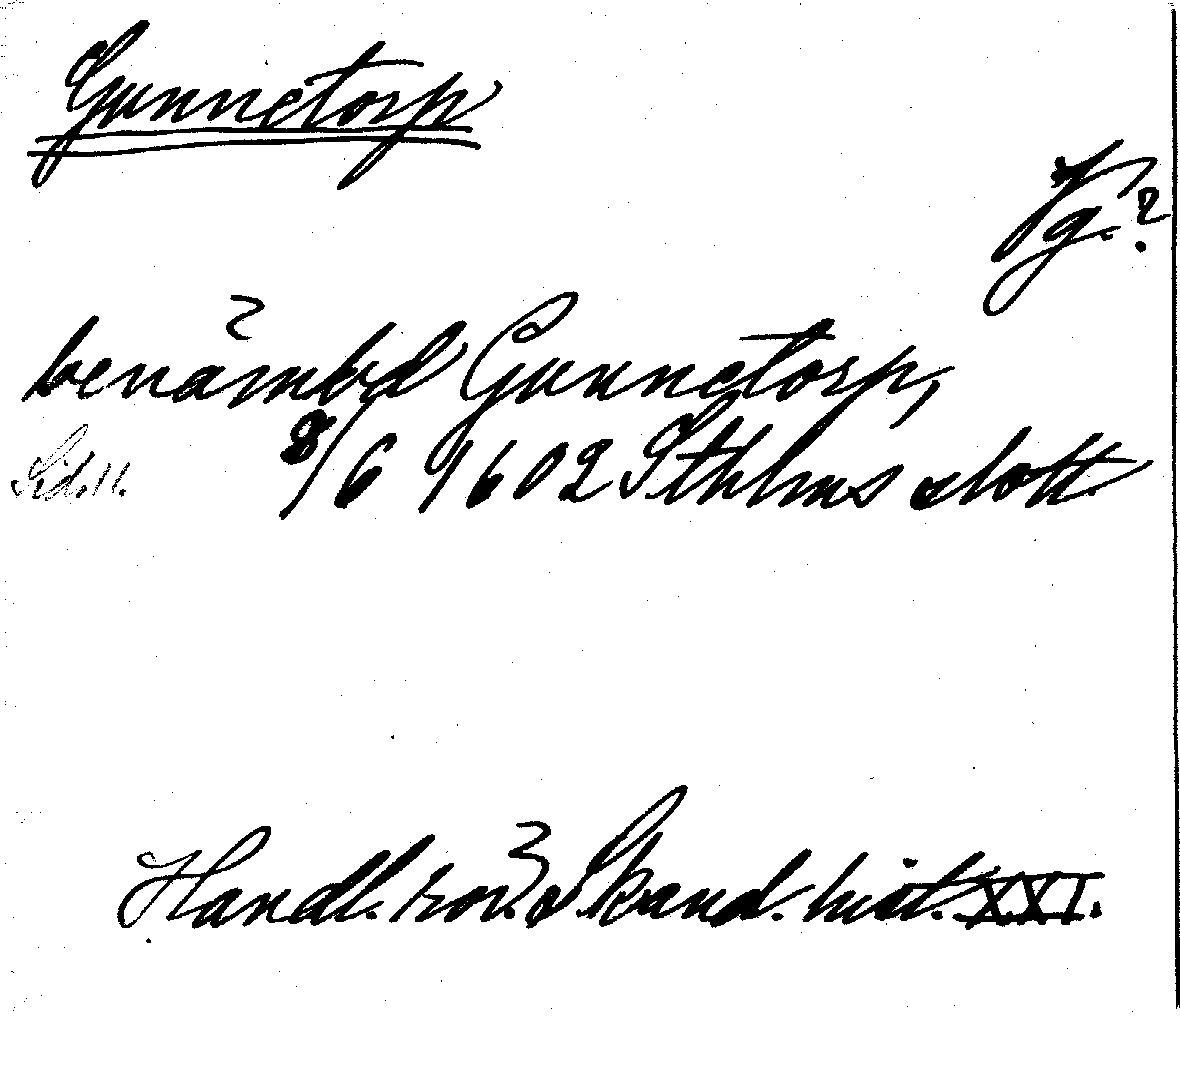 Gunnetorp
Vg.?
benämbd Gunnetorp,
Sid. 11. 8/6 1602 Sthlms slott
Handl. rör. Skand. hist. XXI.